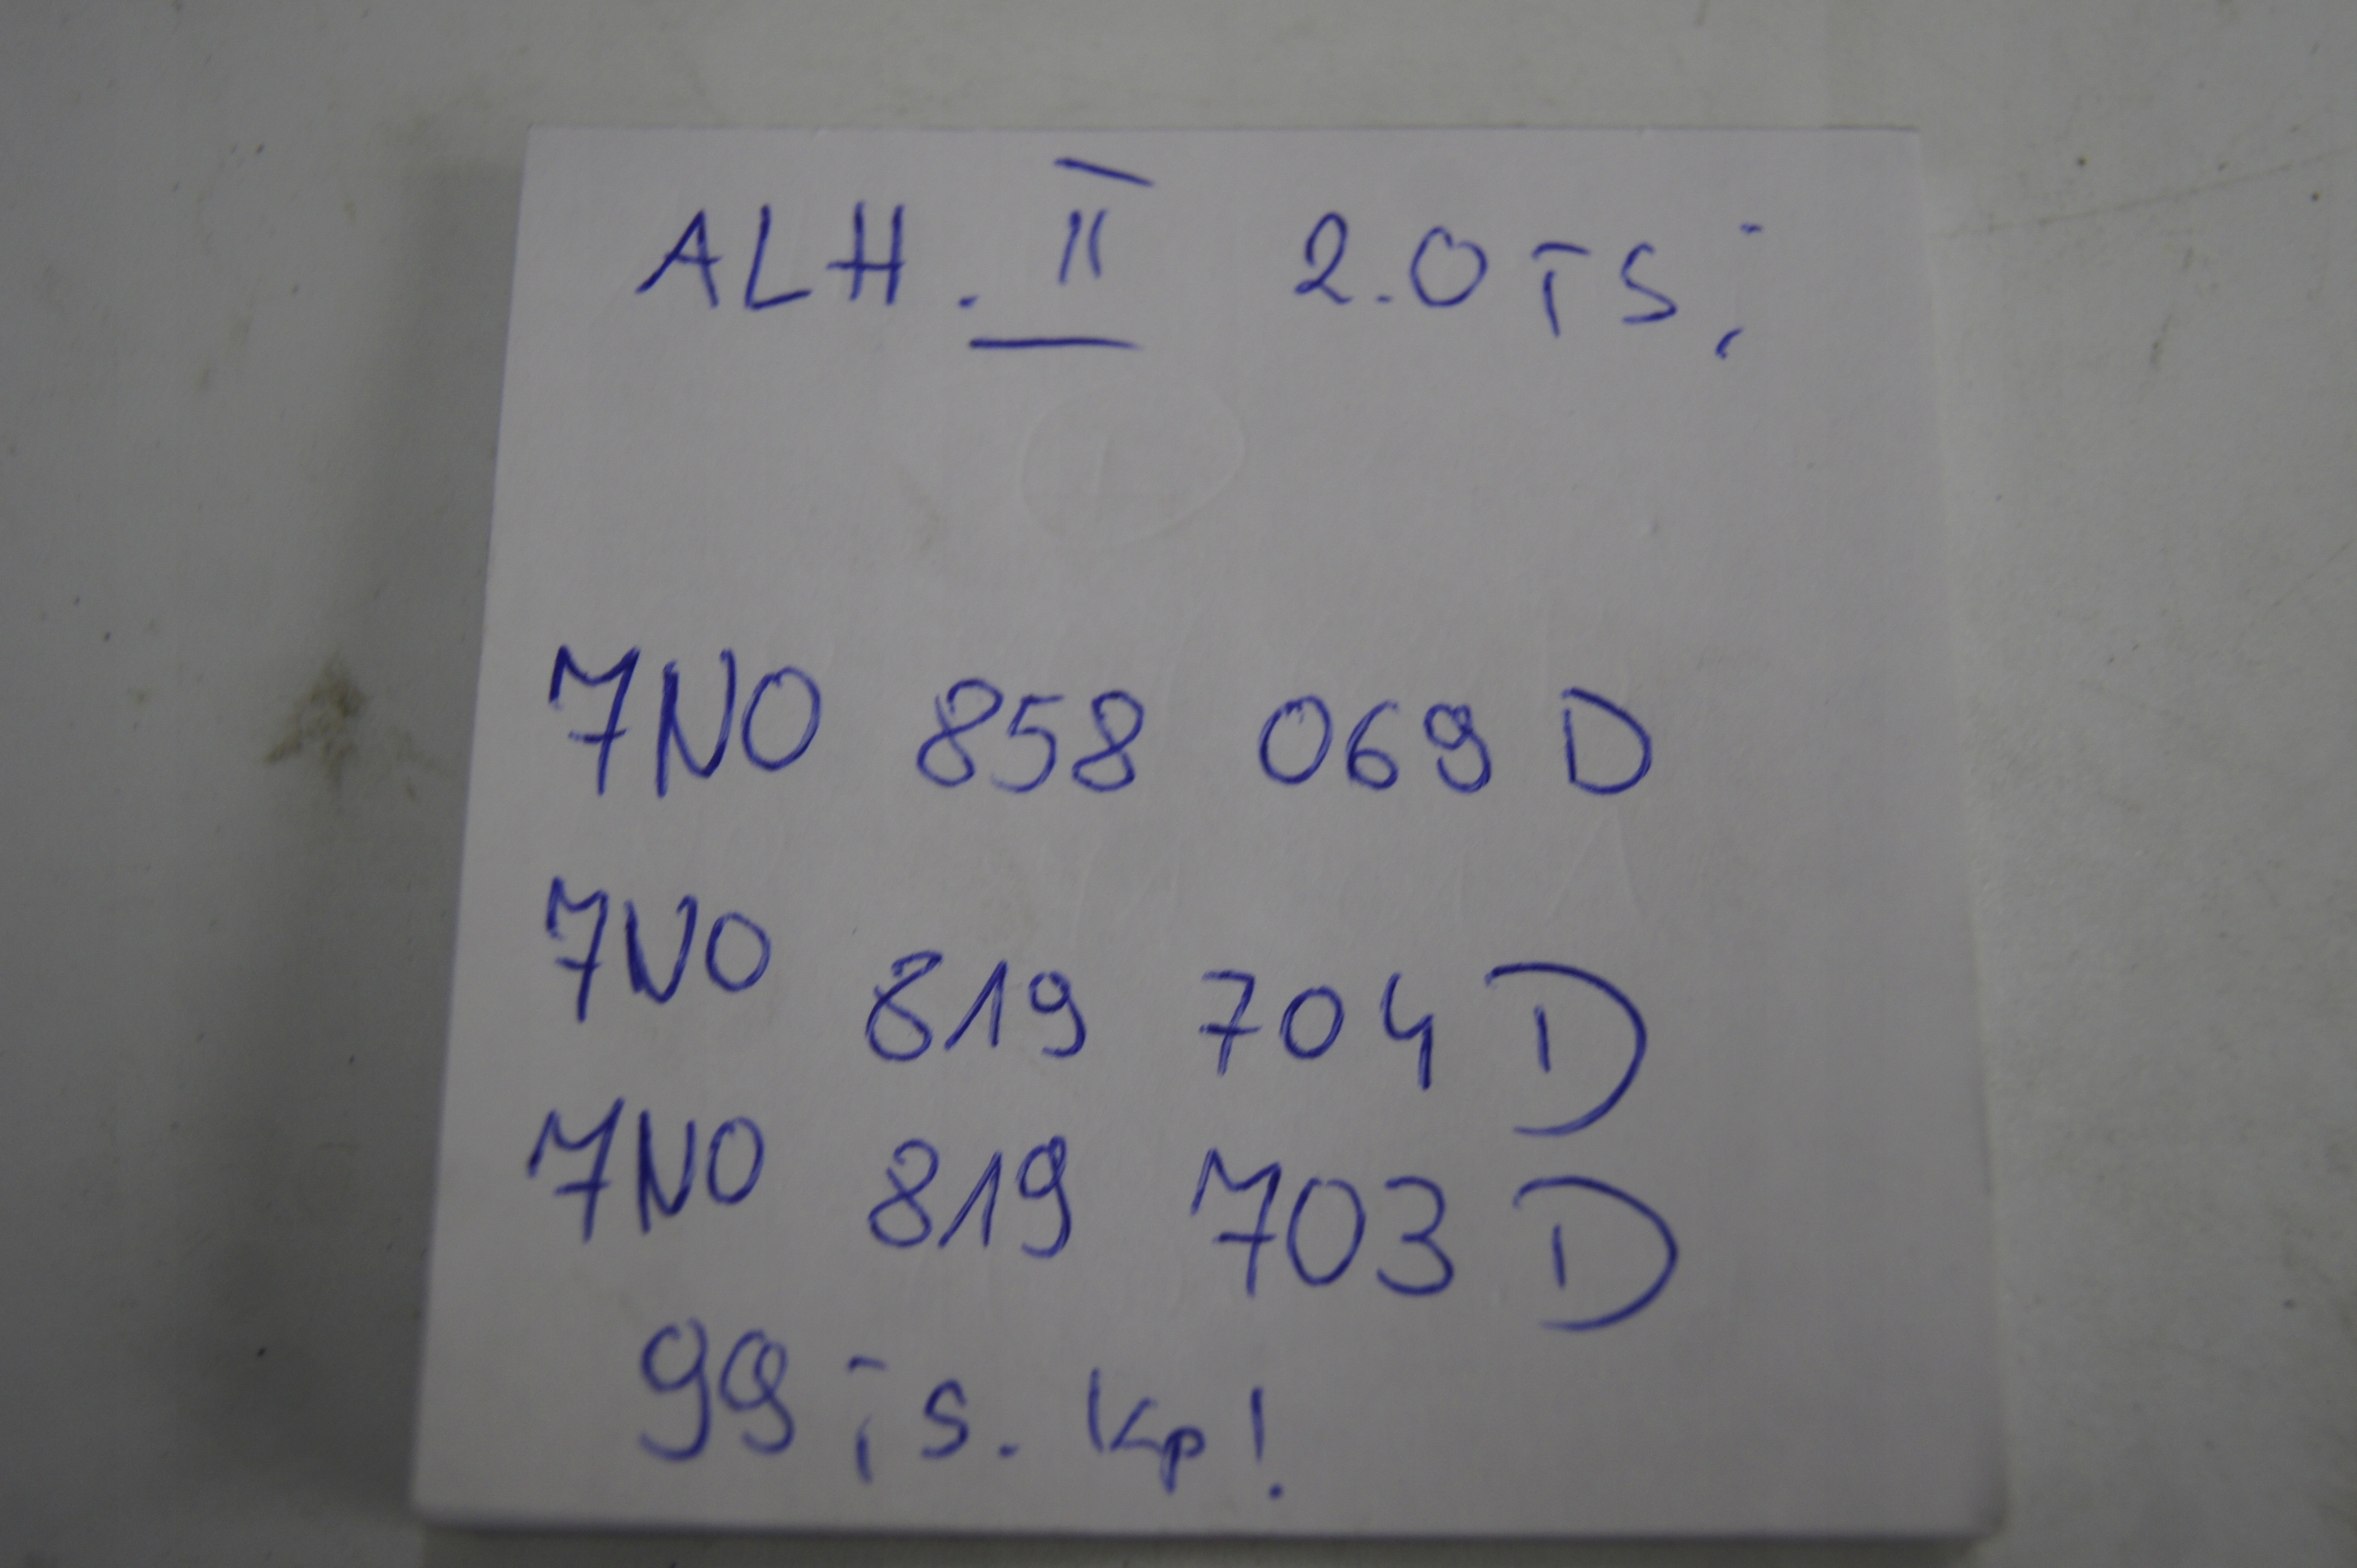 ALH. II 2.0 TSi
7NO 858 069 D
7NO 819 704 D
7NO 819 703 D
99 TS. Kp!